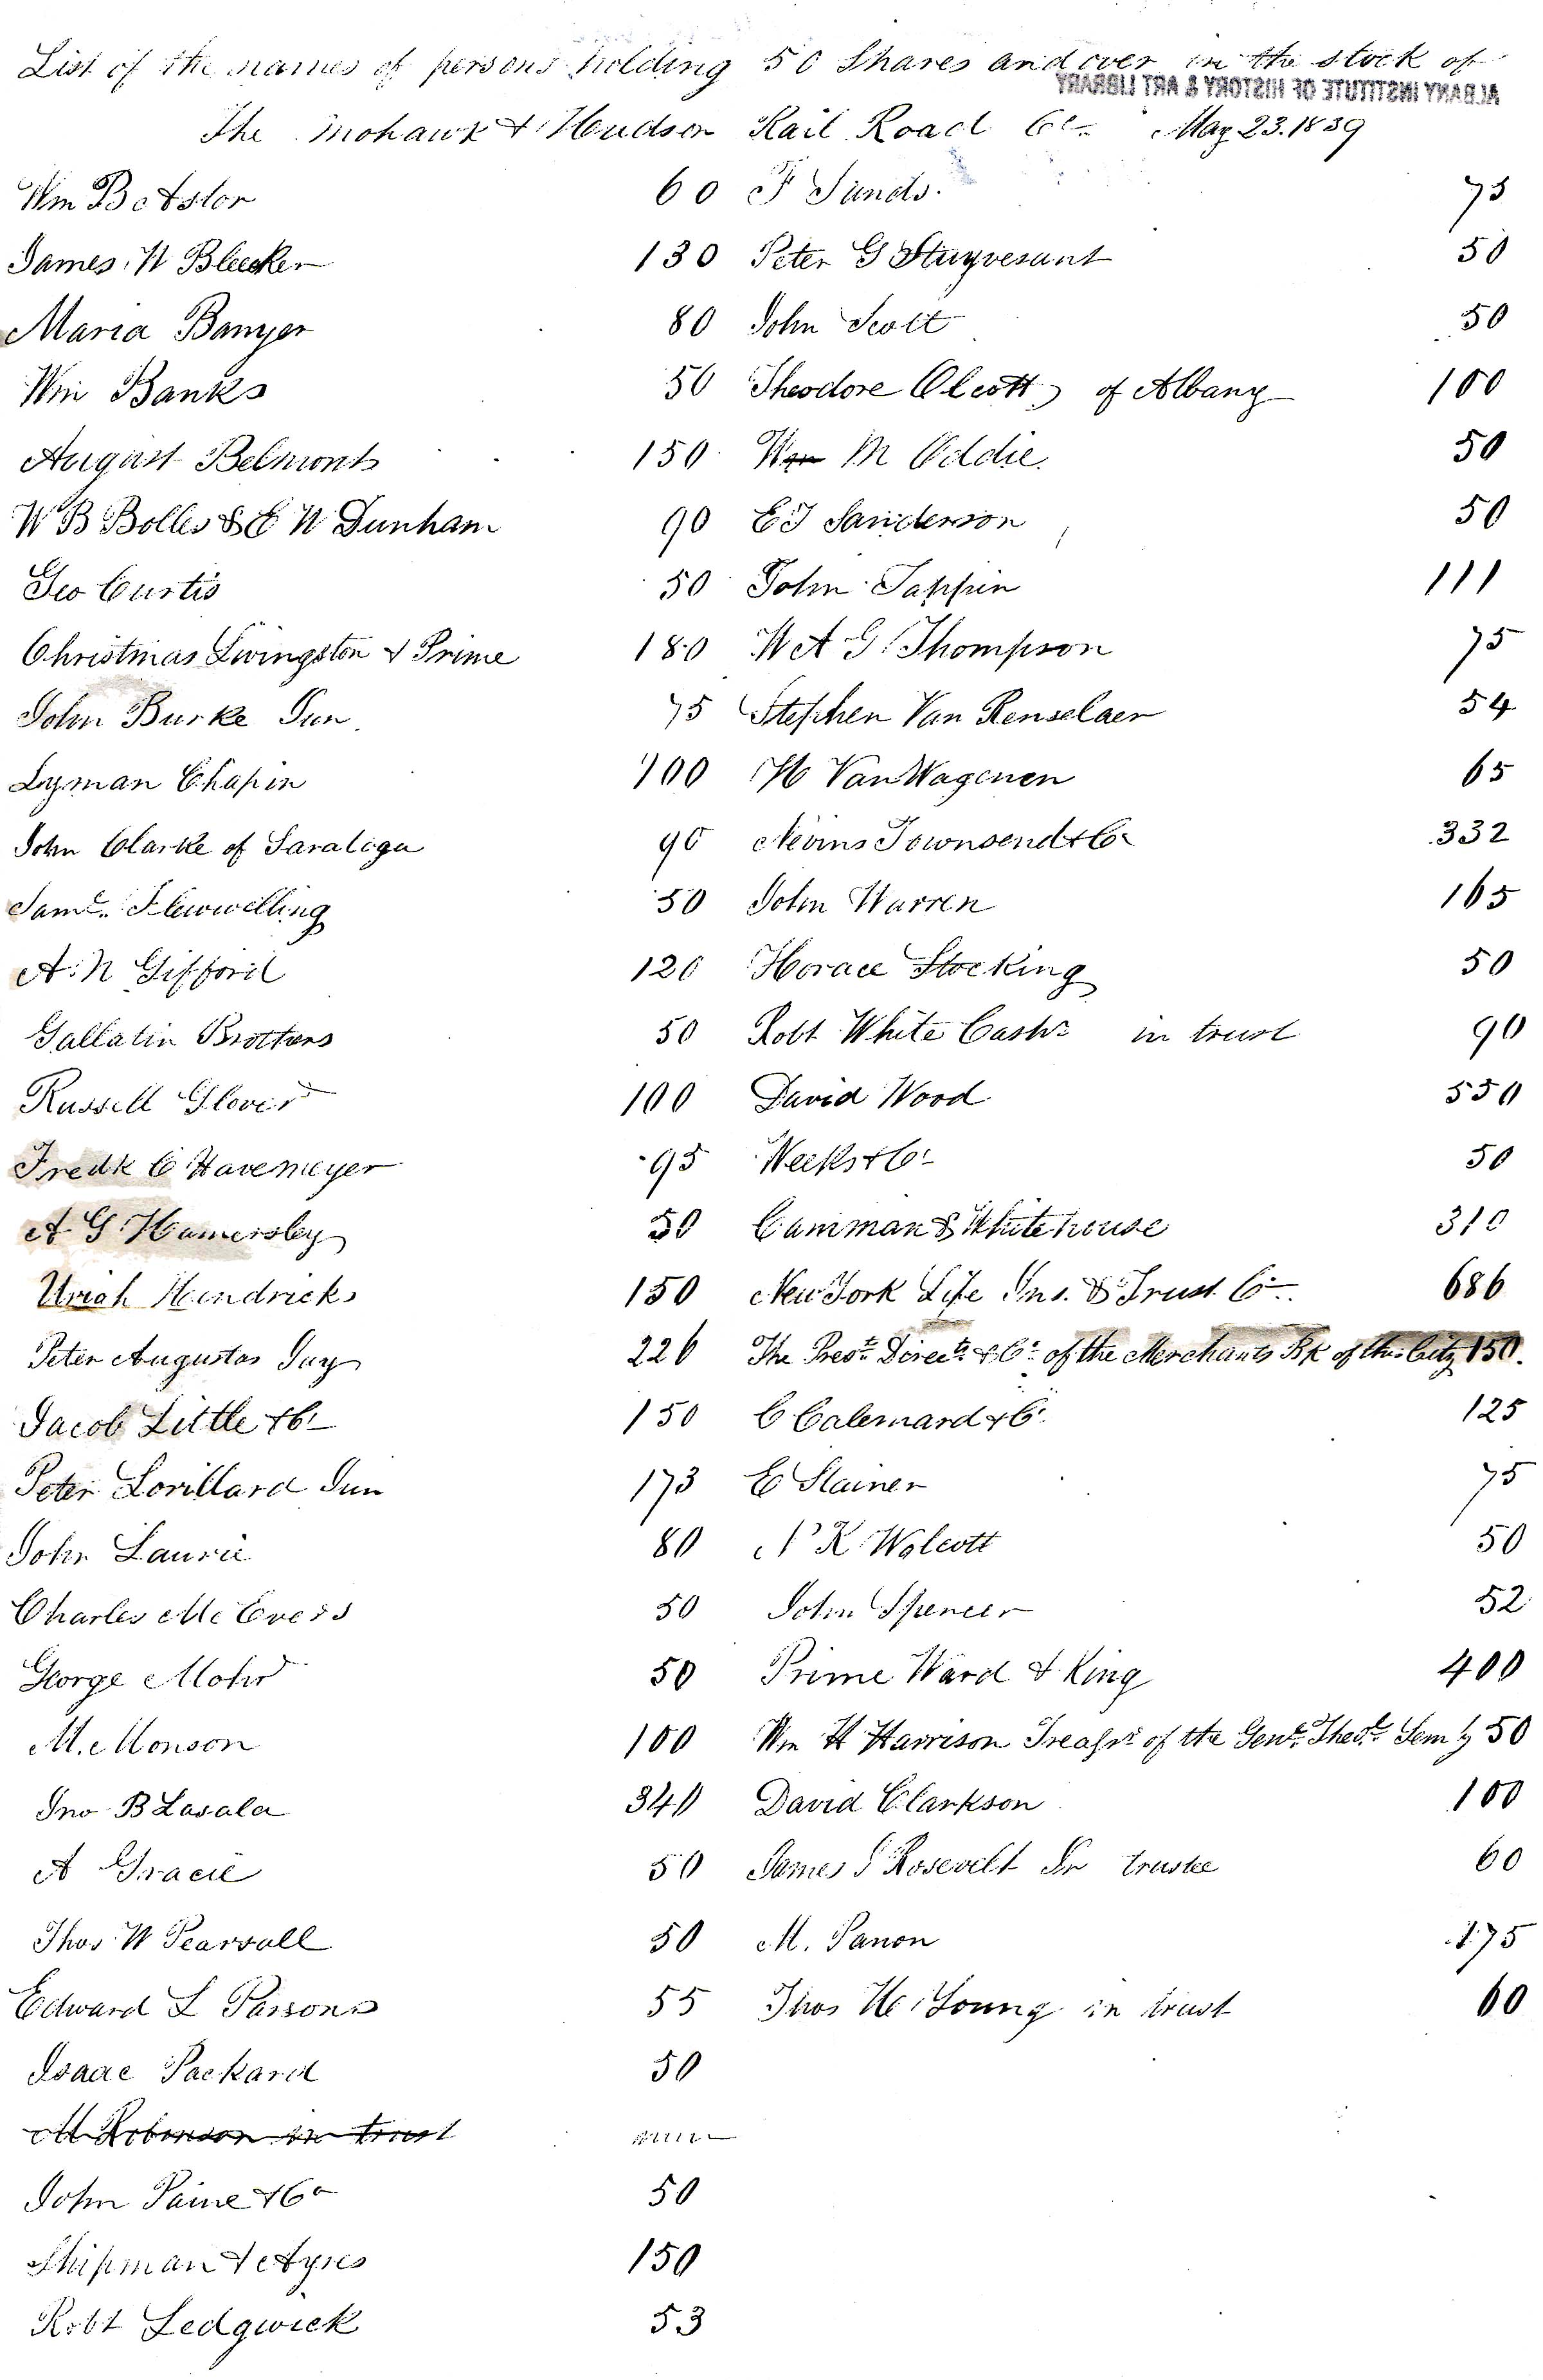 List of the names of persons holding 50 Shares and over in the stock of
ALBANY INSTITUTE OF HISTORY & ART LIBRARY
The Mohawk & Hudson Rail Road Co. May 23. 1839
Wm B Astor 60 F Sands. 75
James W Bleecker 130 Peter G Stuyvesant 50
Maria Banyer 80 John Scott 50
Wm Banks 50 Theodore Olcott, of Albany 100
August Belmont 150 Wm M Oddie. 50
W B Bolles & E W Dunham 90 E J Sanderson 50
Geo Curtis 50 John Tappin 111
Christmas Livingston & Prime 180 W A G Thompson 75
John Burke Jun. 75 Stephen Van Renselaer 54
Lyman Chapin 100 H Van Wagenen 65
John Clarke of Saratoga 90 Nevins Townsend & Co 332
Saml. Flewwelling 50 John Warren 165
A. N Gifford 120 Horace Stocking 50
Gallatin Brothers 50 Robt White Cashr in trust 90
Russell Glover 100 David Wood 550
Fredk C Havemeyer 95 Weeks & Co 50
A G Hamersley 50 Camman & Whitehouse 310
Uriah Hendricks 150 New York Life Ins. & Trust Co. 686
Peter Augustus Jay 226 The Prest. Direct. & Co. of the Merchants Bk of this City 150.
Jacob Little & Co 150 C & Co. 125
Peter Lorillard Jun 173 E Stainer 75
John Laurie 80 K Wolcott 50
Charles Mc Evers 50 John Spencer 52
George Mohr 50 Prime Ward & King 400
M. Monson 100 Wm H Harrison Treasr. of the Genl. Theol. Semy 50
Jno B Lasala 340 David Clarkson 100
A Gracie 50 James I Rosevelt Jr trustee 60
Thos W Pearsall 50 M. Panon 175
Edward L Parsons 55 Thos H Young in trust 60
Isaac Packard 50
M Robinson in trust
John Paine & Co 50
Shipman & Ayres 150
Robt Sedgwick 53